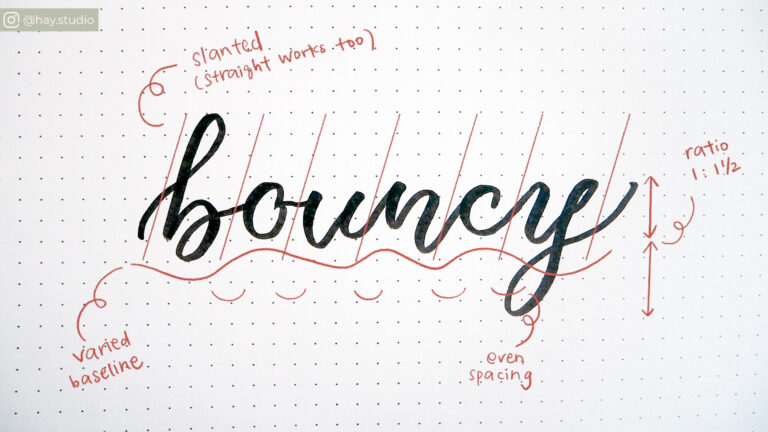 @hay.studio
slanted
(straight works too)
bouncy
ratio
1:1½
varied
baseline
even
spacing